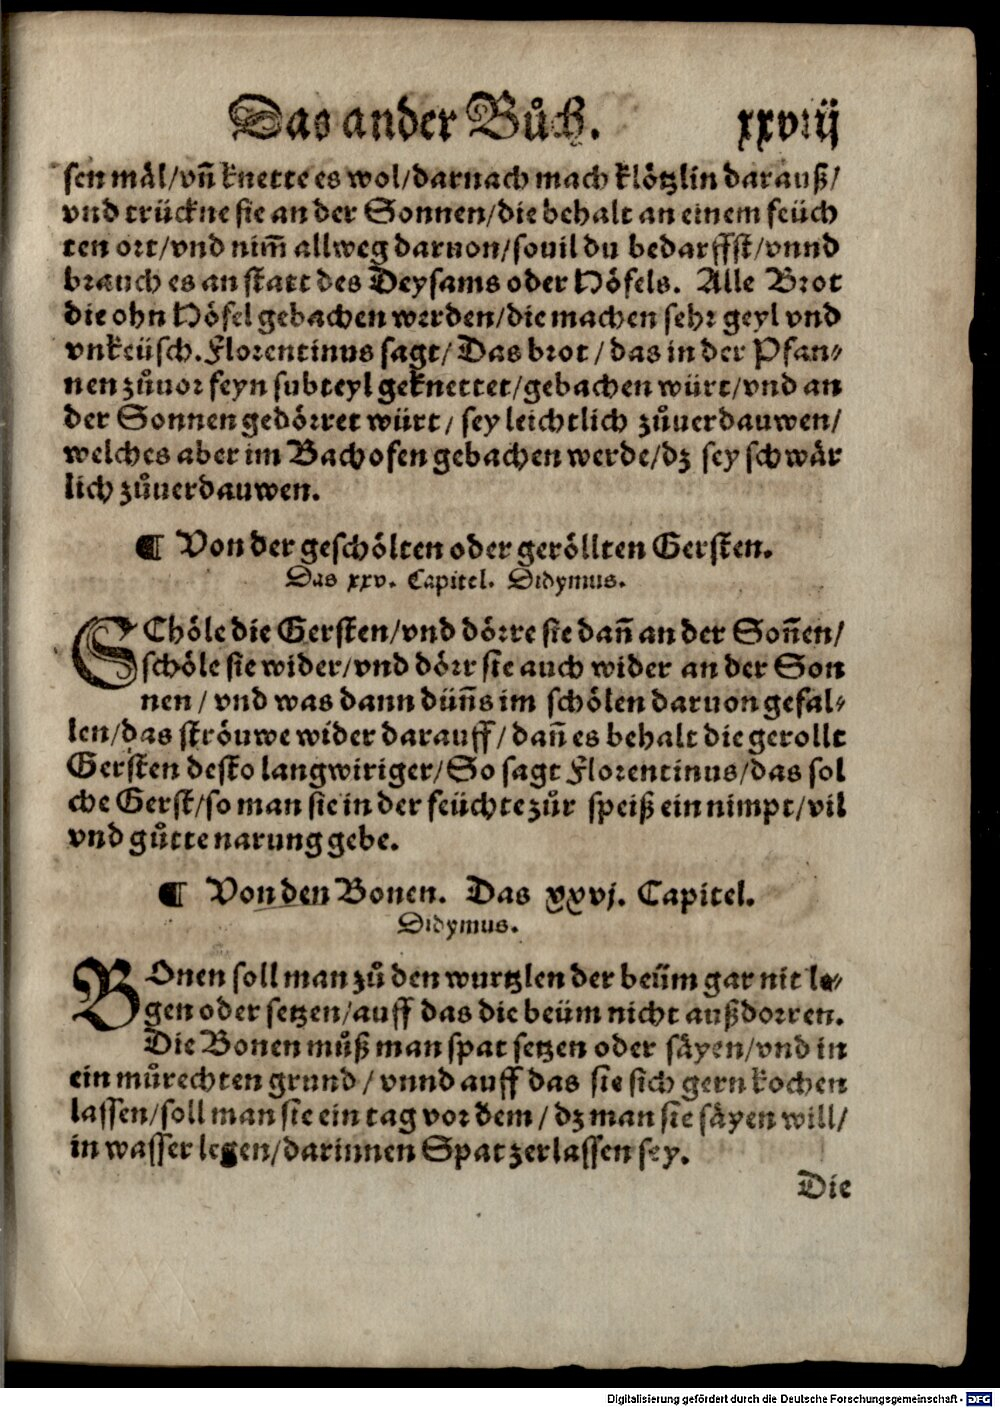 Das ander Bůch. xxviij
sen mäl/vñ knette es wol/darnach mach klötzlin darauß/
vnd trückne sie an der Sonnen/die behalt an einem feüch
ten ort/vnd nim̃ allweg daruon/souil du bedarffst/vnnd
brauch es an statt des Deysams oder Hösels. Alle Brot
die ohn Hösel gebachen werden/die machen sehr geyl vnd
vnkeüsch. Florentinus sagt/Das brot/das in der Pfan-
nen zůuor feyn subteyl geknettet/gebachen würt/vnd an
der Sonnen gedörret würt/sey leichtlich zůuerdauwen/
welches aber im Bachofen gebachen werde/dz sey schwär
lich zůuerdauwen.
¶ Von der geschölten oder geröllten Gersten.
Das xxv. Capitel. Didymus.
SChöle die Gersten/vnd dörre sie dañ an der Soñen/
schöle sie wider/vnd dörr sie auch wider an der Son
nen/vnd was dann düñs im schölen daruon gefal-
len/das ströuwe wider darauff/dañ es behalt die gerollt
Gersten desto langwiriger/So sagt Florentinus/das sol
che Gerst/so man sie in der feüchte zůr speiß ein nimpt/vil
vnd gůtte narung gebe.
¶ Von den Bonen. Das xxvj. Capitel.
Didymus.
BOnen soll man zů den wurtzlen der beüm gar nit le-
gen oder setzen/auff das die beüm nicht außdorren.
Die Bonen můß man spat setzen oder säyen/vnd in
ein můrechten grund/vnnd auff das sie sich gern kochen
lassen/soll man sie ein tag vor dem/dz man sie säyen will/
in wasser legen/darinnen Spat zerlassen sey.
Die
Digitalisierung gefördert durch die Deutsche Forschungsgemeinschaft - DFG